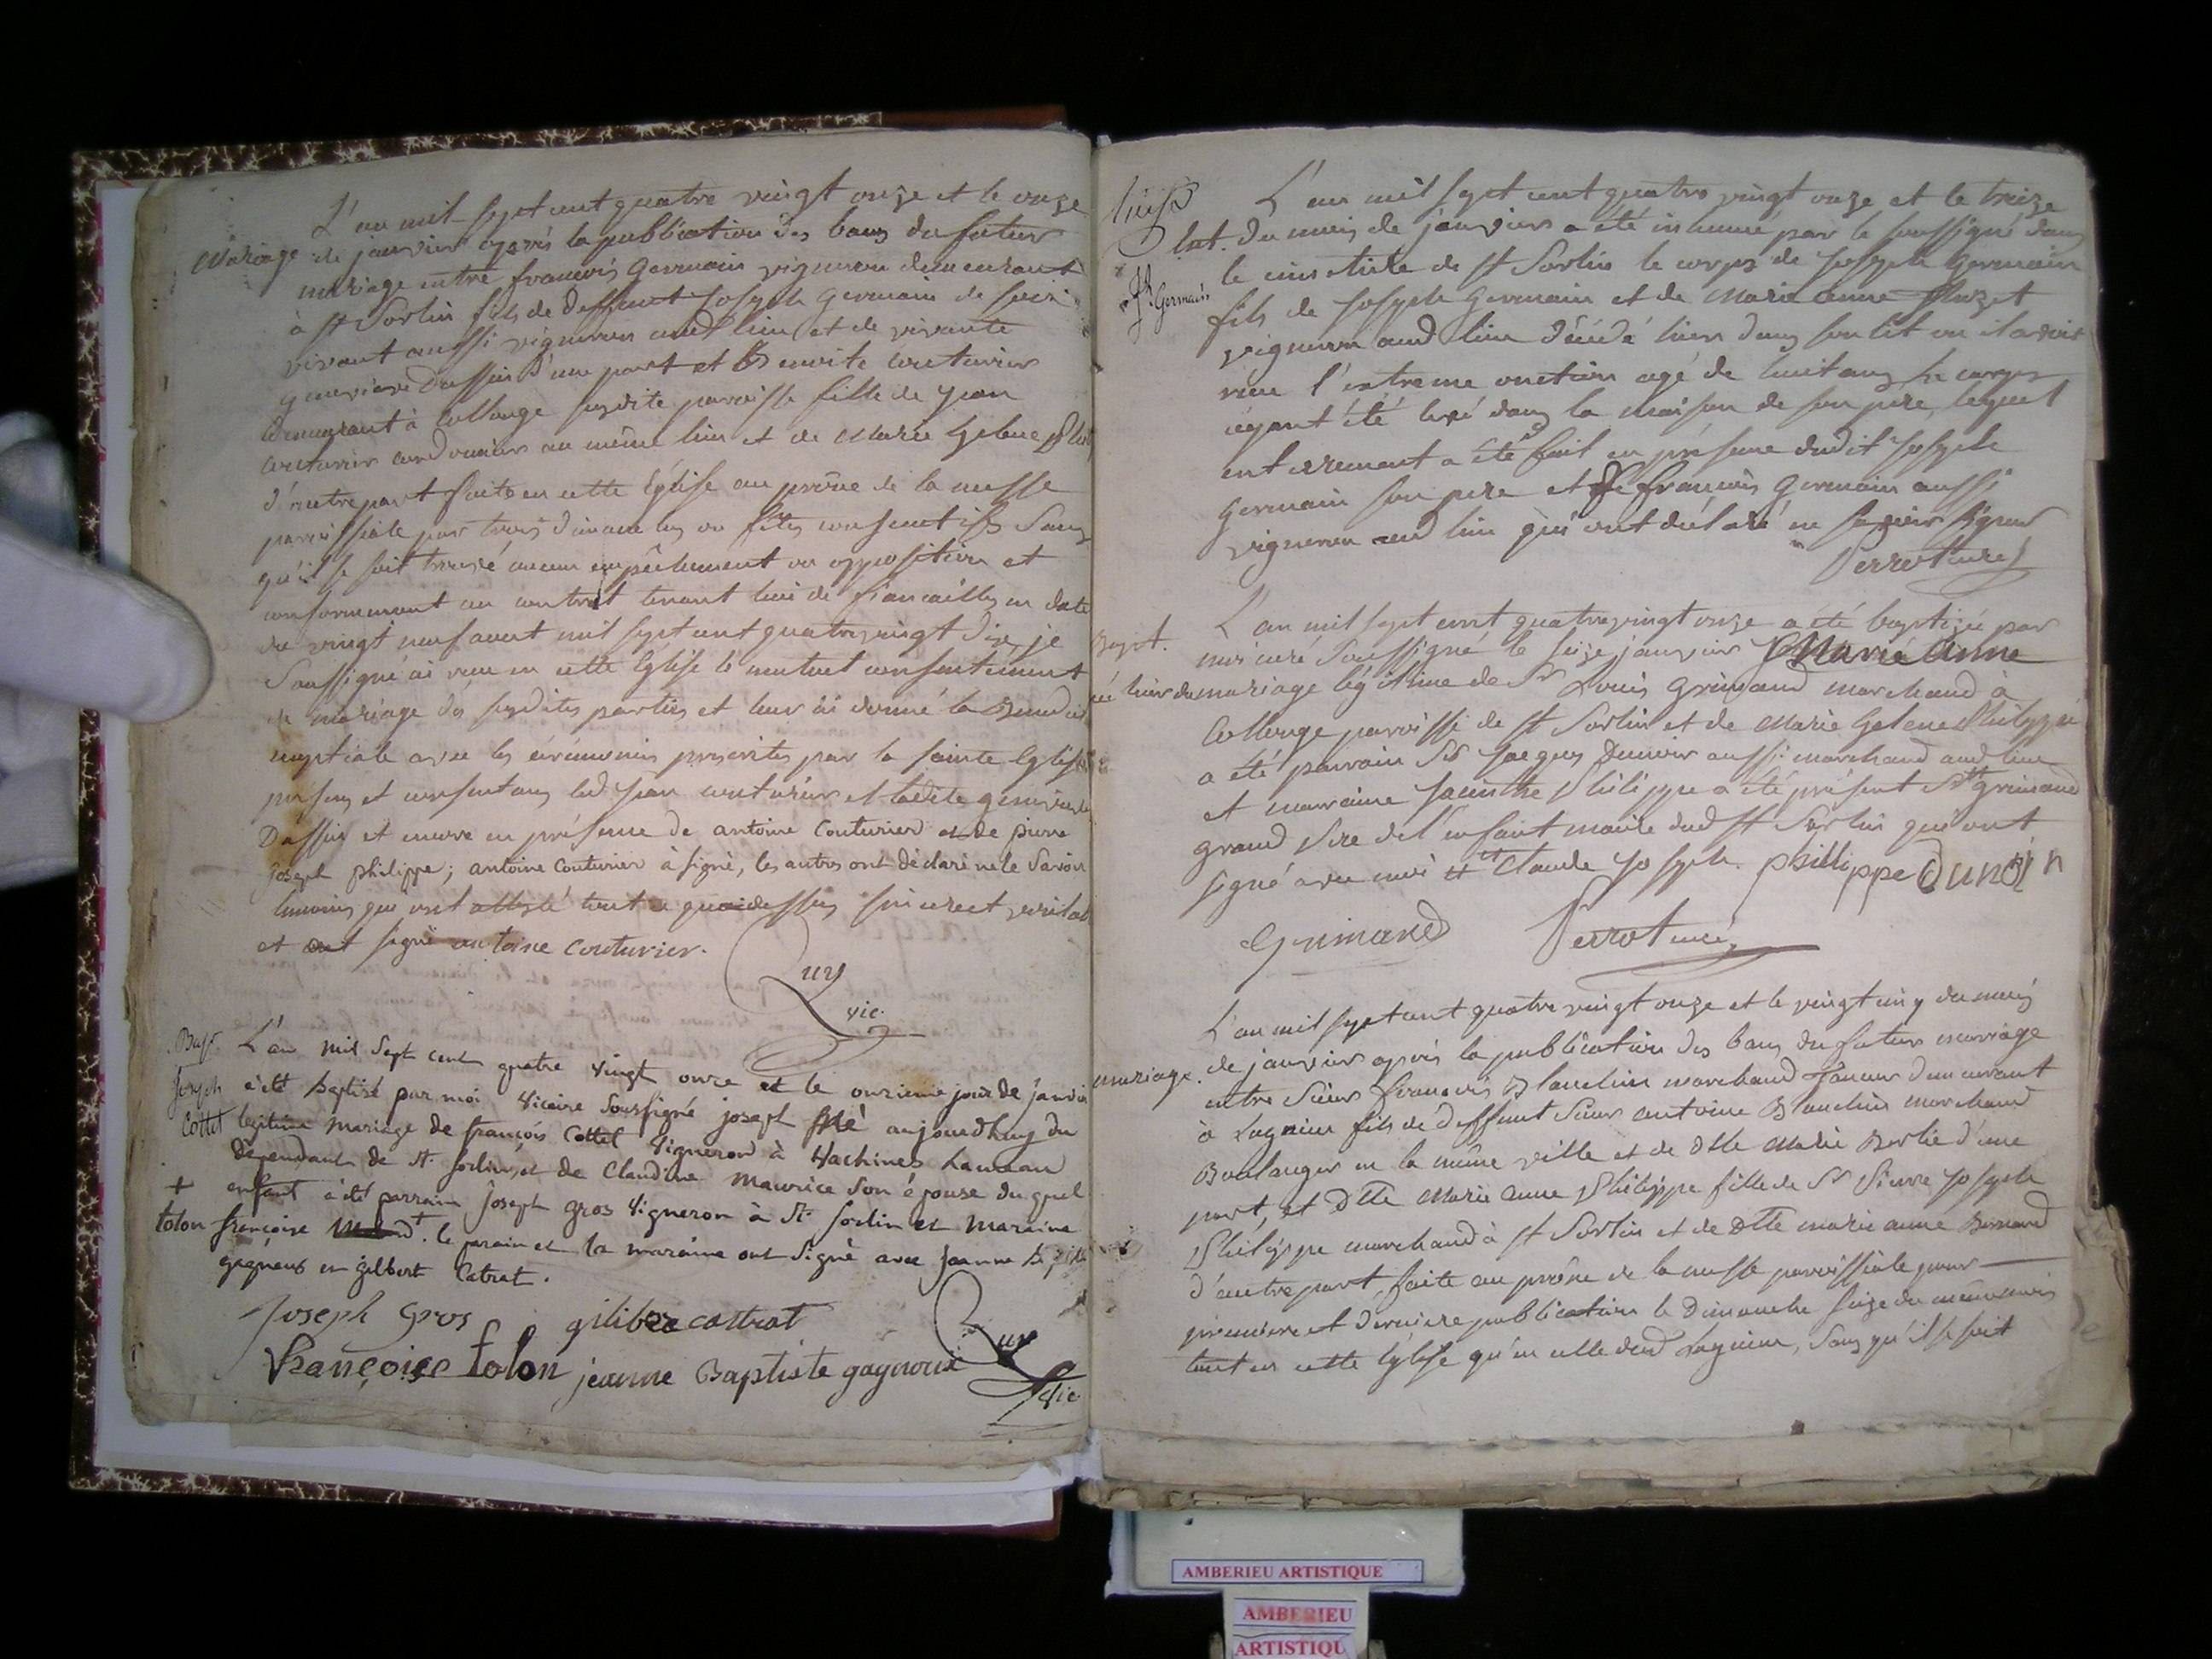 L'an mil sept cent quatre vingt onze et le onze
Mariage de janvier après la publication des bans du futur
mariage entre francois Germain vigneron demeurant
à st Sorlin fils de deffunt Joseph Germain de son
vivant aussi vigneron aud lieu et de vivante
genevieve Dassin d'une part et Benoite couturier
demeurant à Collonge susdite paroisse fille de jean
couturier cordonnier au même lieu et de Marie helene
d'autre part faite en cette Eglise au prône de la messe
paroissiale par trois dimanches ou fêtes consecutifs sans
qu'il se soit trouvé aucun empêchement ou opposition et
conformement au contrat tenant lieu de fiancailles en date
du vingt neuf aout mil sept cent quatre vingt dix, je
Soussigné ai reçu en cette Eglise le mutuel consentement
de mariage des susdites parties et leur ai donné la Bened
nuptiale avec les cérémonies prescrites par la sainte Eglise
presens et consentans led jean couturier et ladite genevieve
Dassin et encore en présence de antoine Couturier et de pierre
Joseph philippe; antoine Couturier à signé, les autres ont déclaré ne le Savoir
temoins qui ont attesté tout ce que dessus sincere et veritab
et ont signé antoine couturier.
Ruy
vic.
Bapt. L'an mil Sept cent quatre vingt onze et le onzieme jour de janvier
Joseph à été baptisé par moi Vicaire Soussigné joseph né aujourdhuy du
Cottet legitime mariage de françois Cottet Vigneron à hameau
dependant de St. Sorlin, et de Claudine Maurice Son épouse du quel
+ enfant à été parrain joseph gros Vigneron à St. Sorlin et Maraine
tolon françoise + . le parain et la maraine ont Signé avec jeanne bap
gagneux et gilbert Catrat.
Joseph Gros giliber cattrat
françoise tolon jeanne Baptiste gagnoux
Ruy
Vic
L'an mil sept cent quatre vingt onze et le treize
du mois de janvier a été inhumé par le soussigné dans
le cimetiere de st Sorlin le corps de Joseph Germain
Jph Germain
fils de Joseph Germain et de Marie anne
vigneron aud lieu décédé hier dans son lit ou il avoit
reçu l'extreme onction agé de huit ans le corps
ayant été levé dans la maison de son pere, lequel
enterrement a été fait en présence dudit Joseph
Germain son pere et de francois Germain aussi
vigneron aud lieu qui ont déclaré ne savoir signer
Perrot curé
L'an mil sept cent quatre vingt onze a été baptizée par
Bapt. moi curé soussigné le seize janvier Marie Anne
née hier du mariage légitime de Sr Louis Grimand marchand à
Collonge paroisse de st Sorlin et de Marie helene Philippe
a été parrain Sr Jacques Dunoir aussi marchand aud lieu
et marraine Jacinthe Philippe a été présent Sr grimand
grand Pere de l'enfant maire dud st Sorlin qui ont
signé avec moi et Claude Joseph. philippe dunoir
Grimand Perrot curé
L'an mil sept cent quatre vingt onze et le vingt cinq du mois
mariage. de janvier après la publication des bans du futur mariage
entre Sieur francois Blanchin marchand Taneur demeurant
à Lagnieu fils de deffunt Sieur antoine Blanchin marchand
Boulanger en la même ville et de Dlle Marie Bertie d'une
part, et Dlle Marie anne Philippe fille de Sr Pierre Joseph
Philippe marchand à st Sorlin et de Dlle marie anne Bernard
d'autre part, faite au prône de la messe paroissiale pour
premiere et derniere publication le Dimanche seize du même mois
tant en cette Eglise qu'en celle dud Lagnieu, sans qu'il se soit
AMBERIEU ARTISTIQUE
AMBERIEU
ARTISTIQU